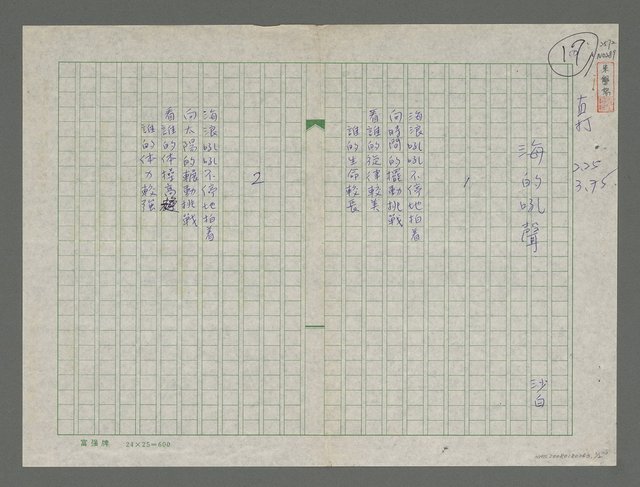 19
N0289
直打
2.25
3.95
海的吼聲
沙白
1
海浪吼吼不停地拍着
向時間的擺動挑戰
看誰的旋律較美
誰的生命較長
2
海浪吼吼不停地拍着
向太陽的轉動挑戰
看誰的体積高
誰的体力較強
富強牌 24×25=600